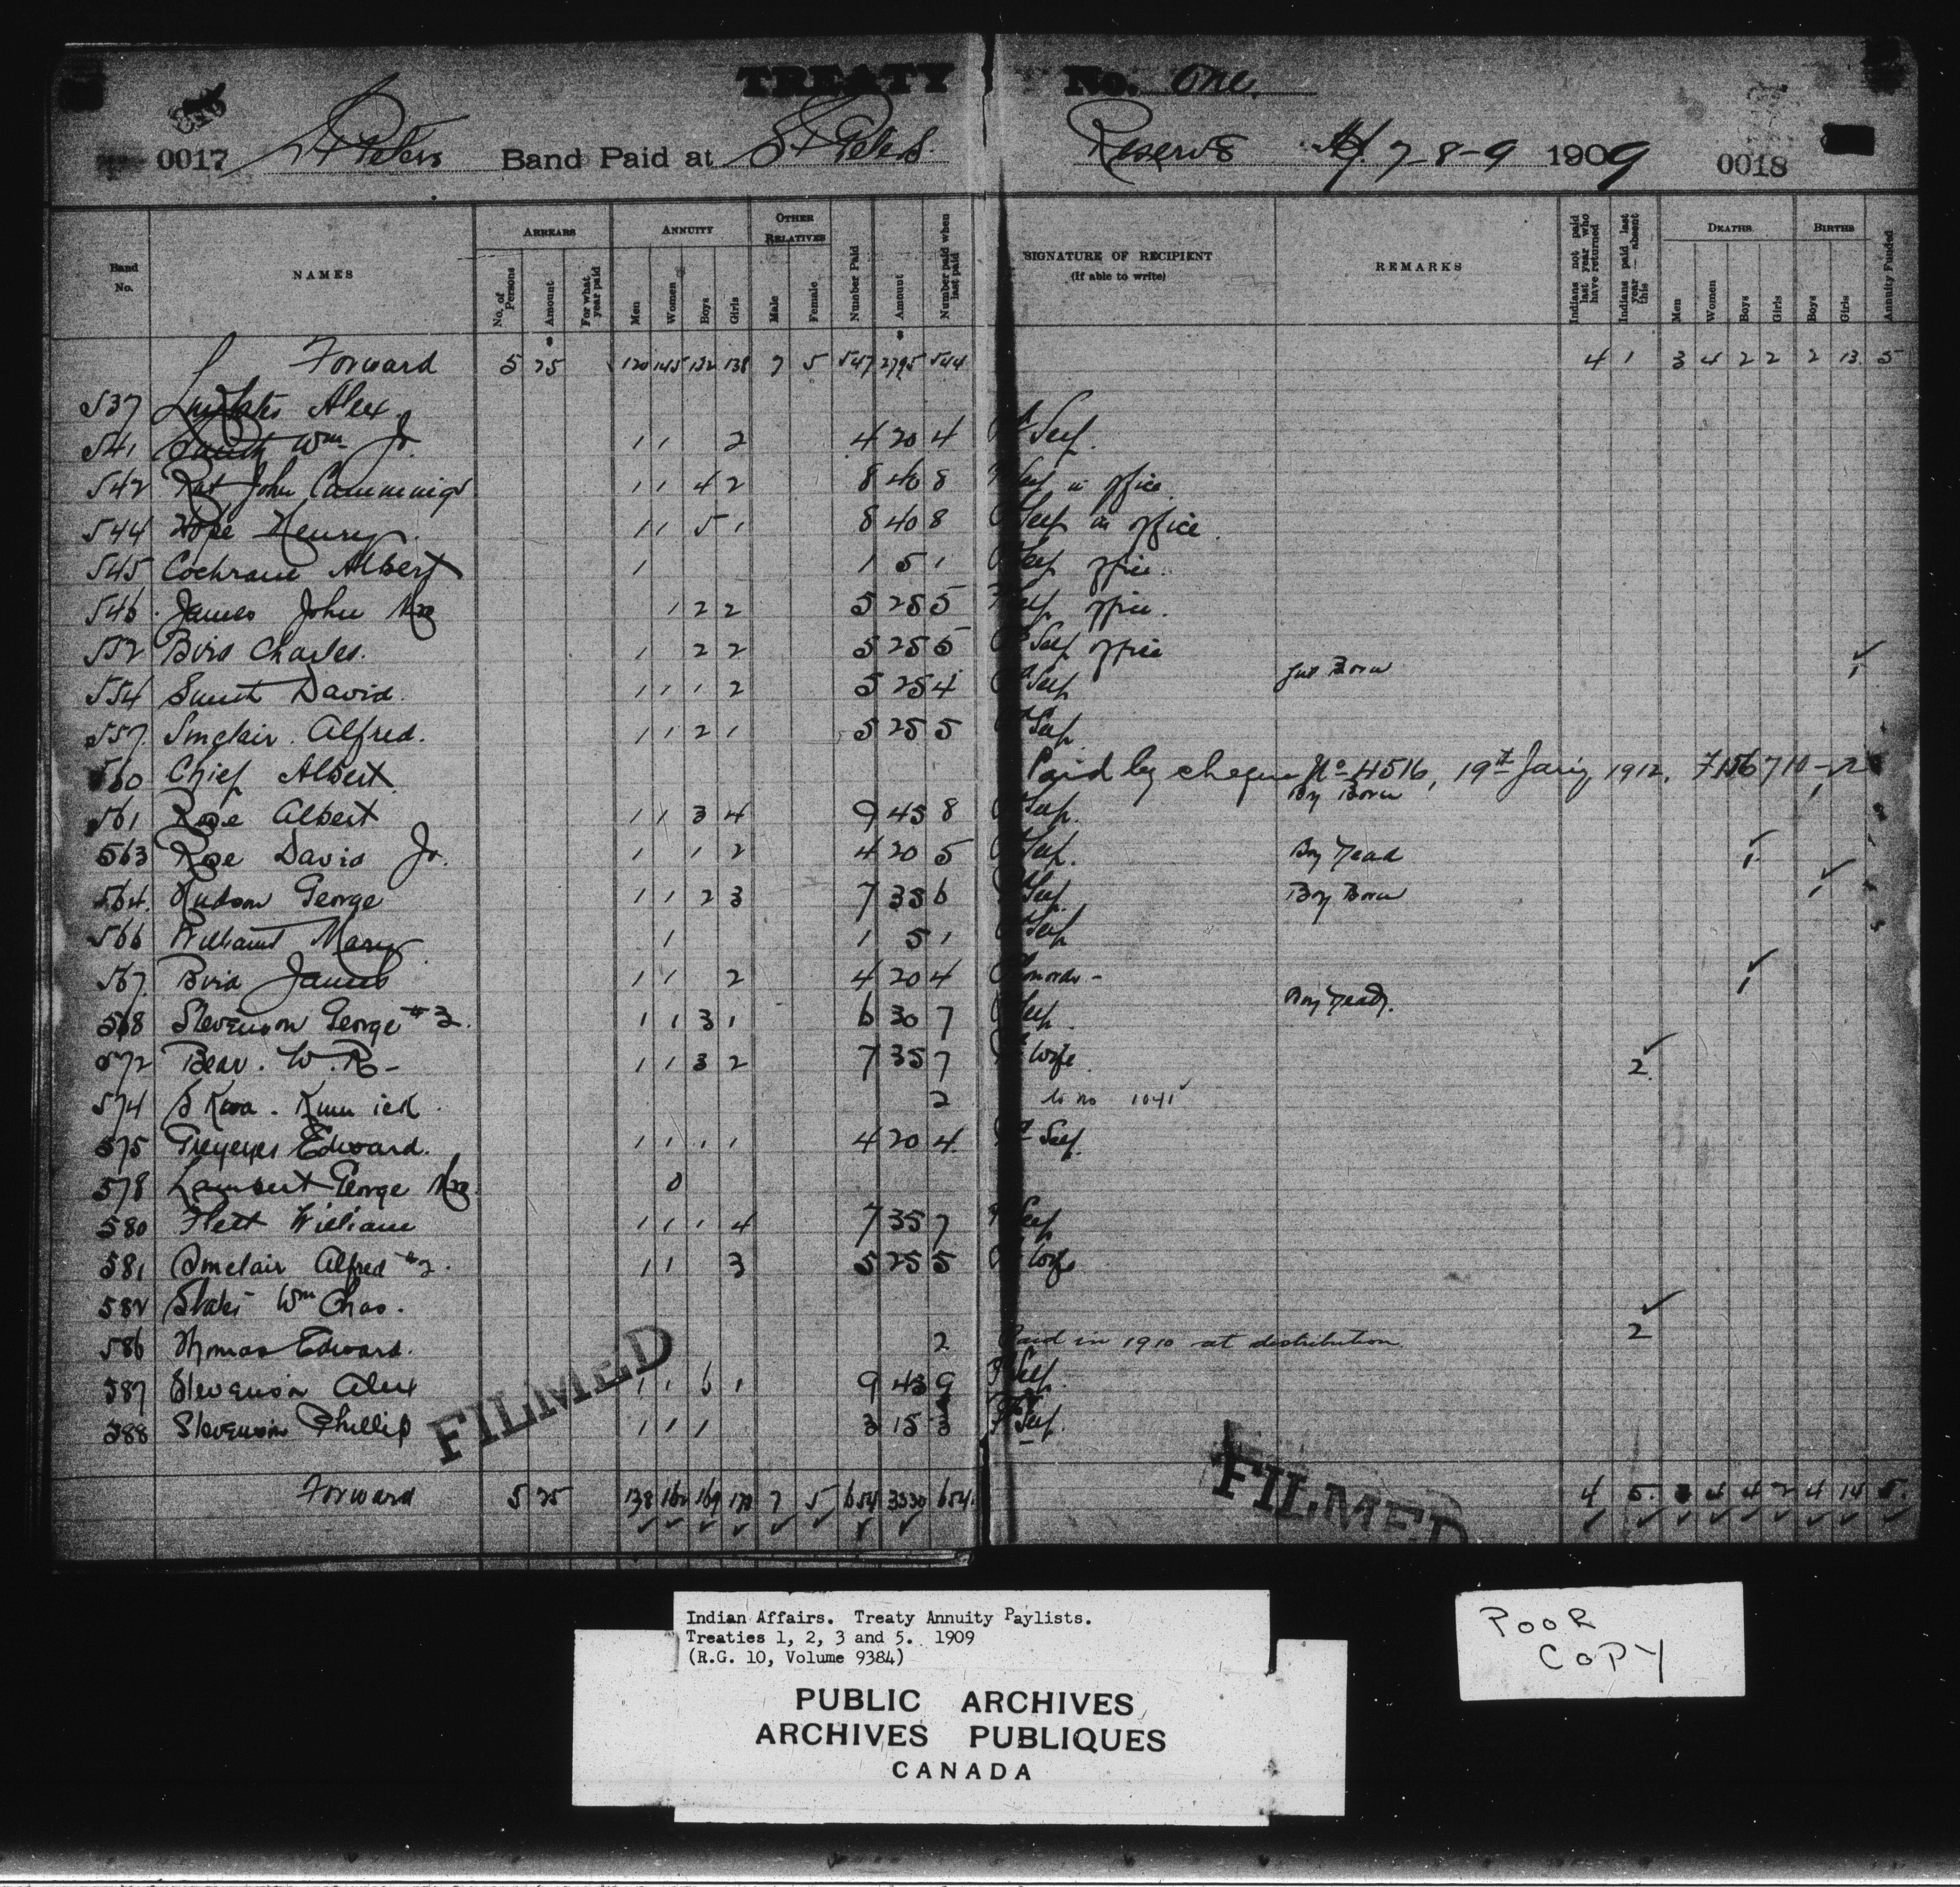 TREATY No. One.
0017 St Peters Band Paid at St Peters Reserve 7-8-9 1909 0018
Band No. NAMES ARREARS ANNUITY OTHER RELATIVES Number Paid Amount Number paid when last paid SIGNATURE OF RECIPIENT (If able to write) REMARKS Indians not paid last year who have returned Indians paid last year absent this DEATHS BIRTHS Annuity Funded
No. of Persons Amount For what year paid Men Women Boys Girls Male Female Men Women Boys Girls Boys Girls
Forward 5 25 120 145 132 138 7 5 547 2795 544 4 1 3 4 2 2 2 13 5
537 Alex
541 Smith Wm Jr. 1 1 2 4 20 4 Self.
542 Rat John Cummings 1 1 4 2 8 40 8 Self in office
544 Hope Henry 1 1 5 1 8 40 8 Self in office
545 Cochrane Albert 1 1 5 1 Self office
546 James John Mrs 1 2 2 5 25 5 Self office.
552 Bird Charles. 1 2 2 5 25 5 Self office
554 Smith David. 1 1 1 2 5 25 4 Self Girl Born 1
557 Sinclair Alfred. 1 1 2 1 5 25 5 Self
560 Chief Albert Paid by cheque No 4516, 19th Jan'y, 1912,
561 Rose Albert 1 1 3 4 9 45 8 Self. Boy Born 1
563 Rose David Jr. 1 1 2 4 20 5 Self. Boy Dead 1
564 Hudson George 1 1 2 3 7 35 6 Self. Boy Born 1
566 Williams Mary 1 1 5 1 Self
567 Bird James 1 1 2 4 20 4
568 Stevenson George #3. 1 1 3 1 6 30 7 Self. Boy Dead. 1
572 Bear. W. R- 1 1 3 2 7 35 7 Wife
574 S Kwa. Kum ick 2 to no 1041 2
575 Greyeyes Edward. 1 1 1 1 4 20 4 Self.
578 Lambert George Mrs. 0
580 Flett William 1 1 1 4 7 35 7 Self
581 Sinclair Alfred #2. 1 1 3 5 25 5 Wife
582 Wm Chas.
586 Thomas Edward. 2 Paid in 1910 at distribution 2
587 Stevenson Alex 1 1 6 1 9 45 9 Self.
588 Stevenson Phillip 1 1 1 3 15 3 Self.
FILMED
FILMED
Forward 5 25 138 162 169 173 7 5 654 3330 654 4 5 3 4 4 2 4 14 5.
Indian Affairs. Treaty Annuity Paylists.
Treaties 1, 2, 3 and 5. 1909
(R.G. 10, Volume 9384)
PUBLIC ARCHIVES
ARCHIVES PUBLIQUES
CANADA
POOR
COPY